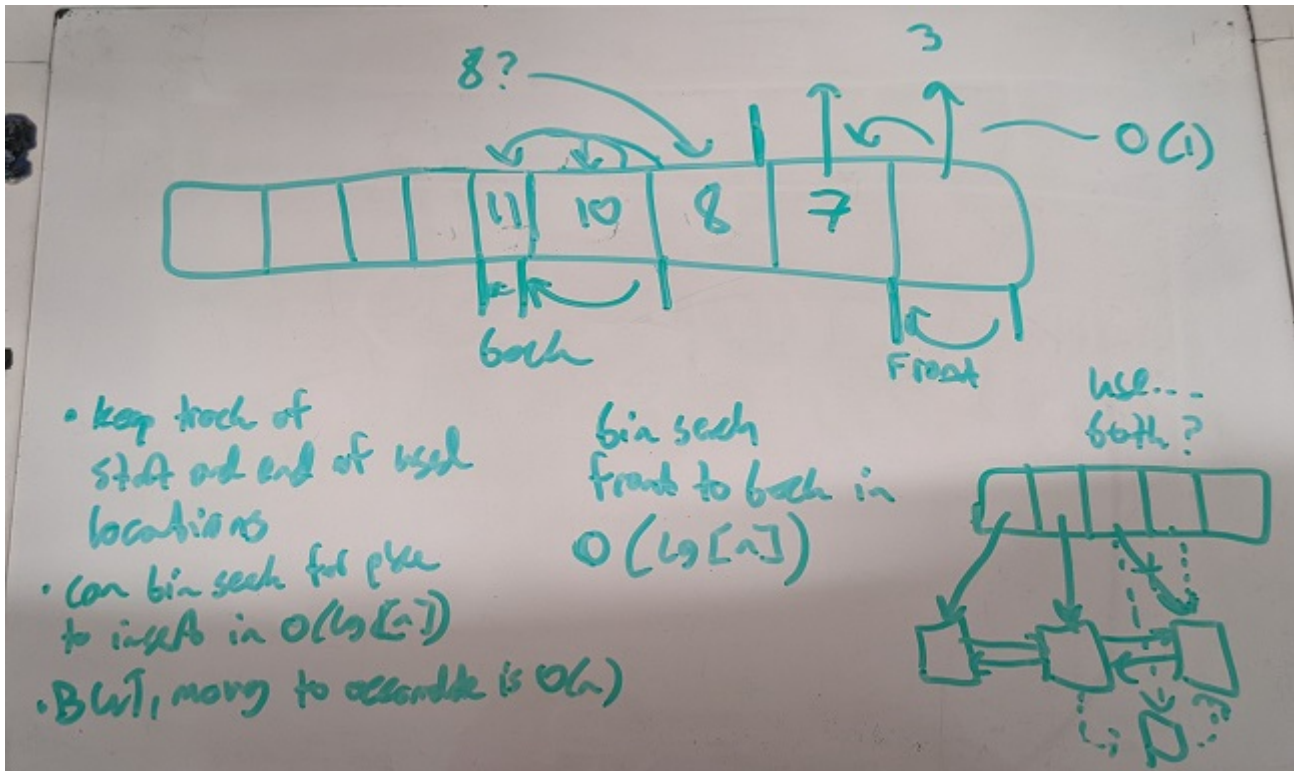 3
8?
O(1)
11 10 8 7
back
Front
• keep track of
start and end of used
locations
• can bin search for place
to insert in O(lg[n])
• BUT, moving to accomodate is O(n)
bin search
front to back in
O(lg[n])
use....
both?